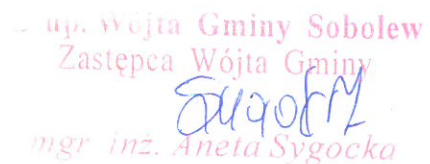 up. Wójta Gminy Sobolew
Zastępca Wójta Gminy
mgr inż. Aneta Sygocka